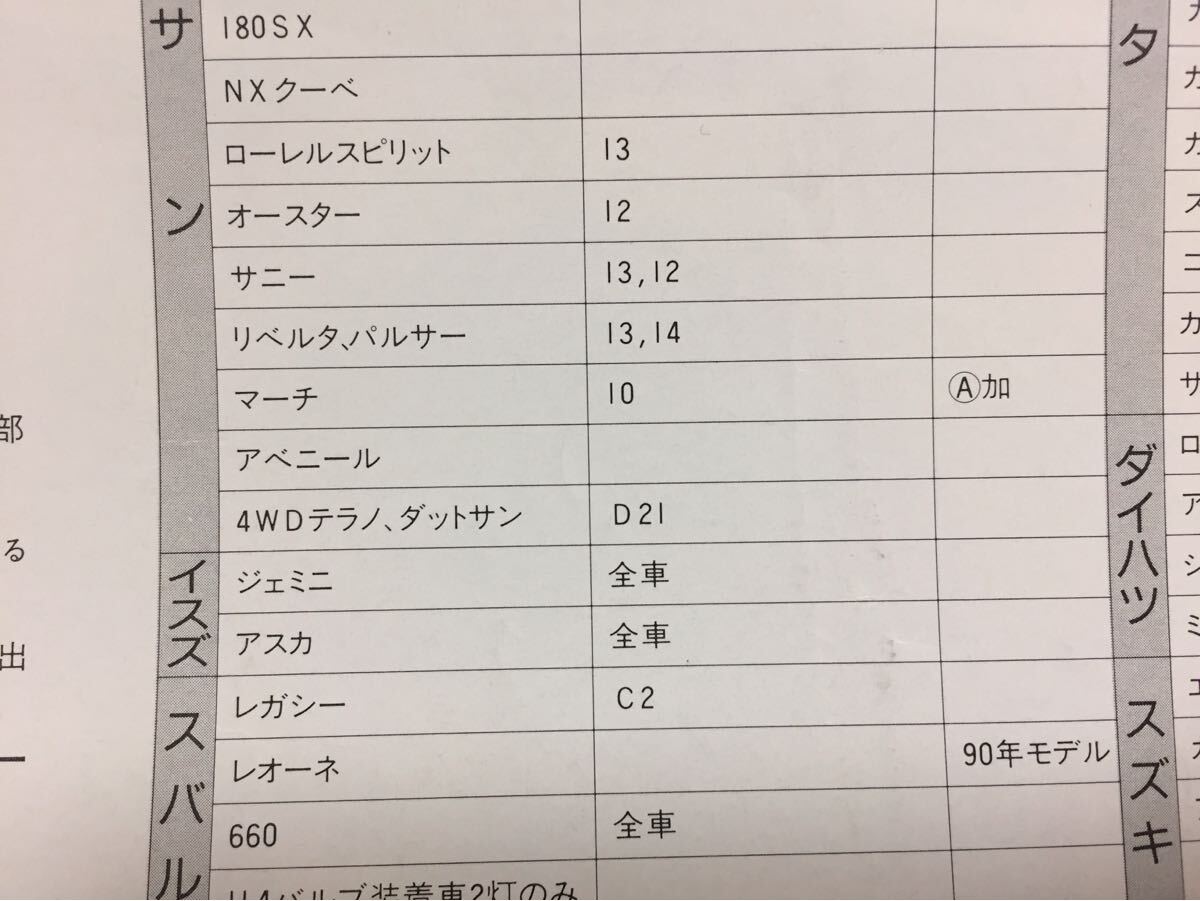 サン
180SX
NXクーペ
ローレルスピリット 13
オースター 12
サニー 13,12
リベルタ、パルサー 13,14
マーチ 10 Ⓐ加
アベニール
4WDテラノ、ダットサン D21
イスズ
ジェミニ 全車
アスカ 全車
スバル
レガシー C2
レオーネ 90年モデル
660 全車
H4バルブ装着車2灯のみ
部
る
出
タ
ダイハツ
スズキ